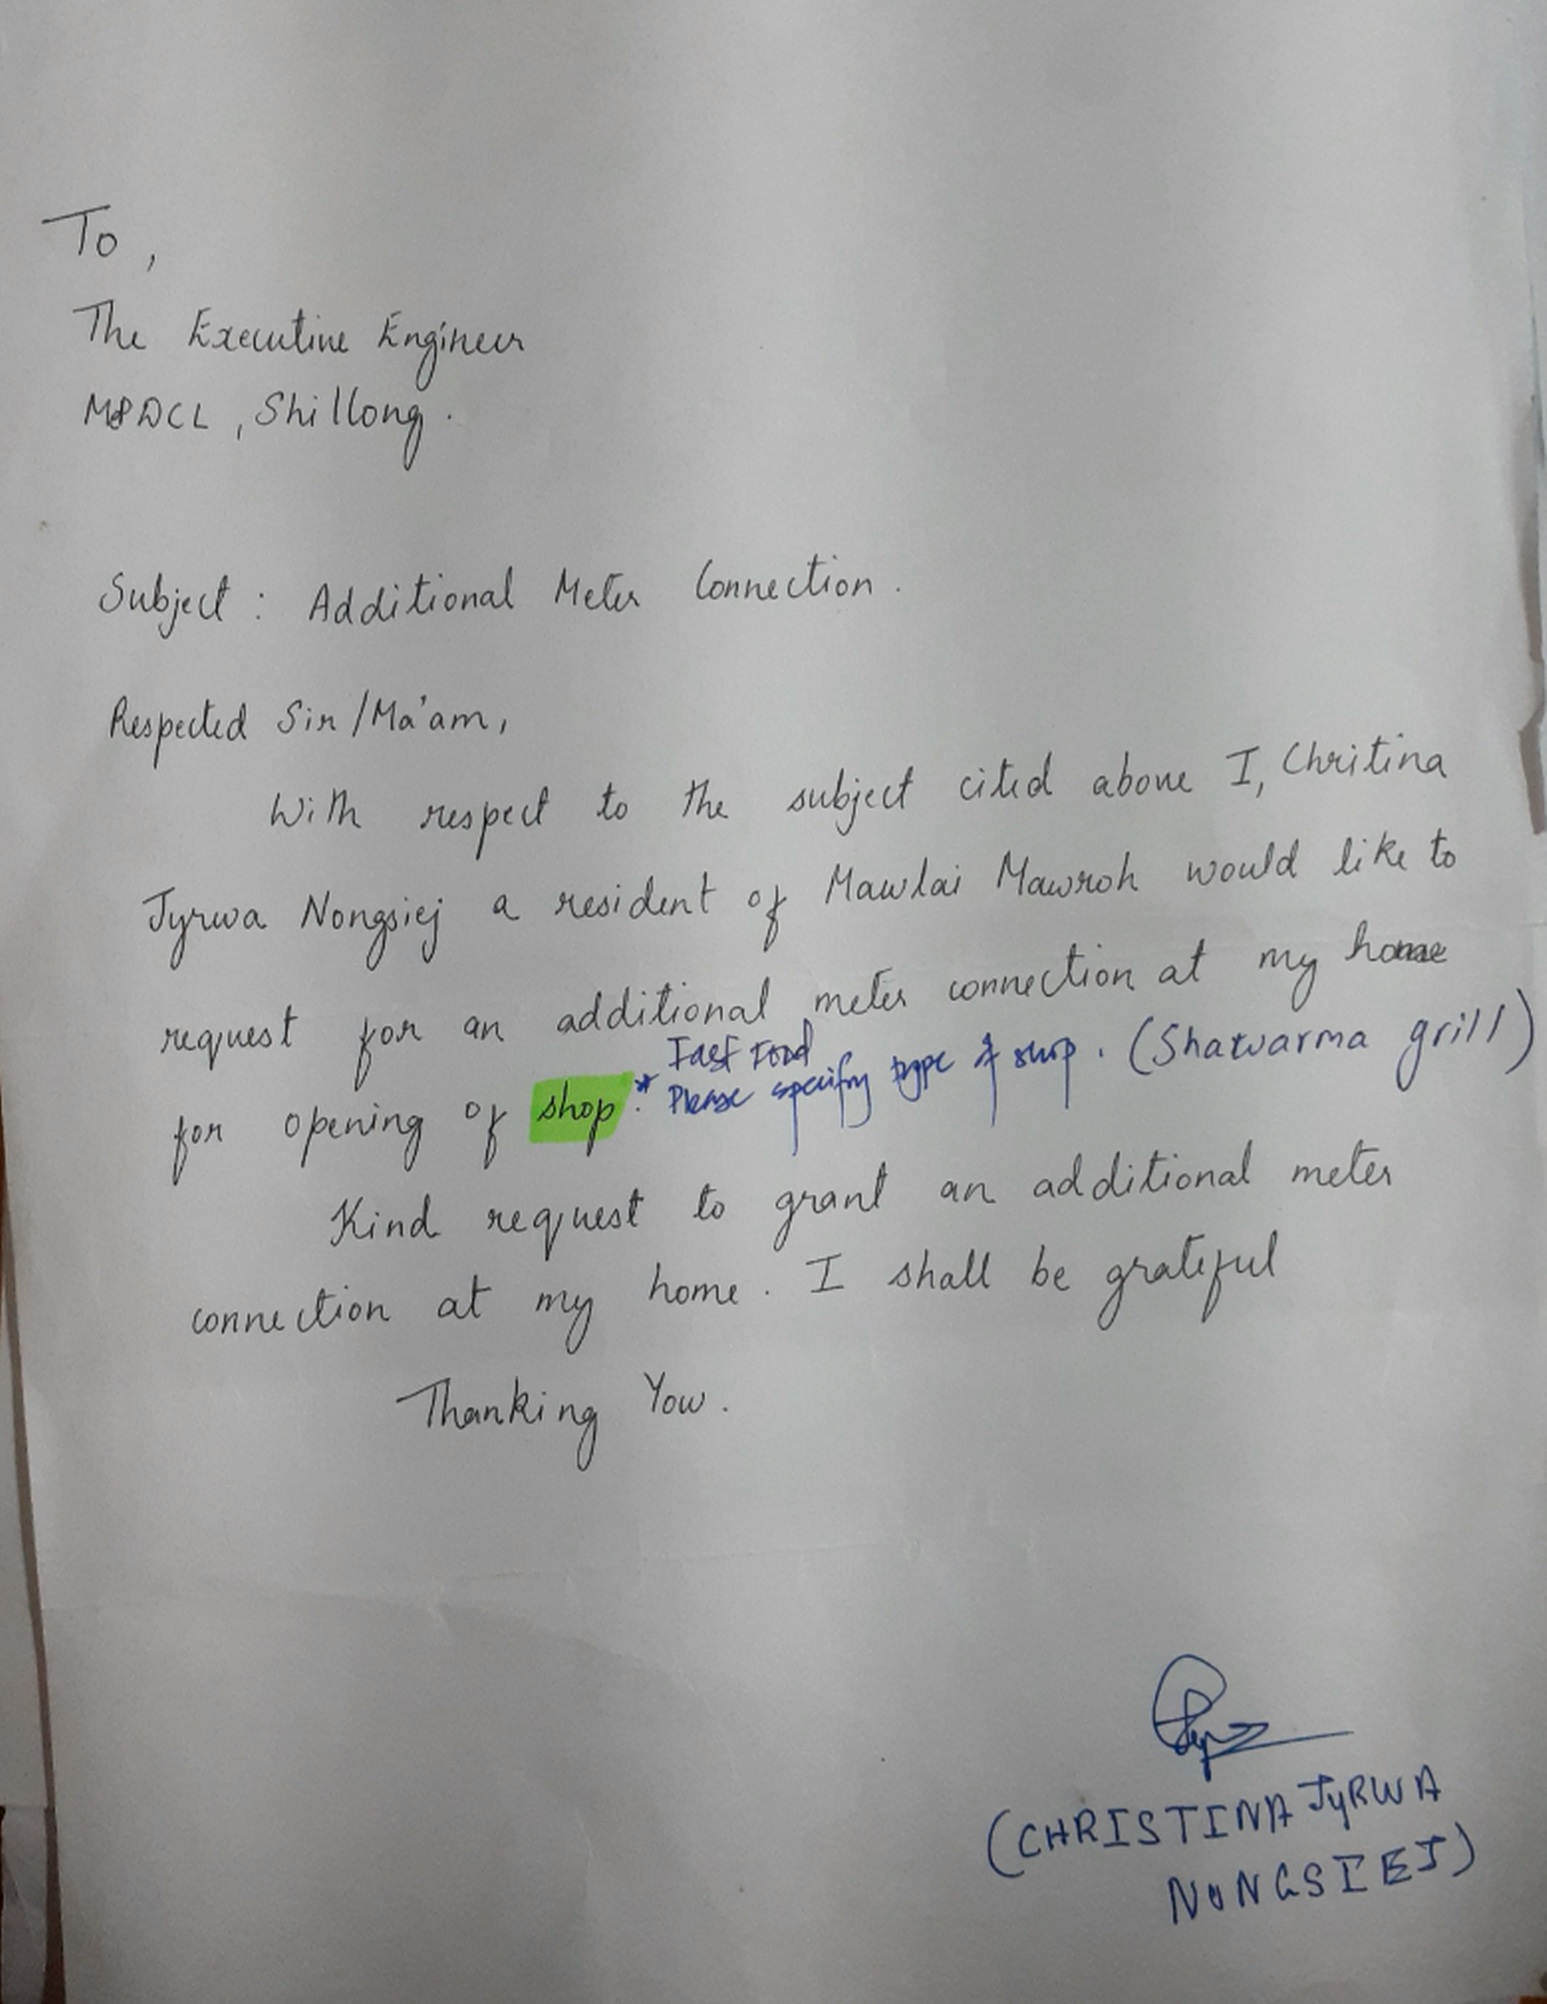 To,
The Executive Engineer
MePDCL, Shillong.
Subject : Additional Meter Connection.
Respected Sir/Ma'am,
With respect to the subject cited above I, Chritina
Jyrwa Nongsiej a resident of Mawlai Mawroh would like to
request for an additional meter connection at my home
Fast Food
for opening of shop. * Please specify type of shop. (Shawarma grill)
Kind request to grant an additional meter
connection at my home. I shall be grateful
Thanking You.
(CHRISTINA JYRWA
NONGSIEJ)